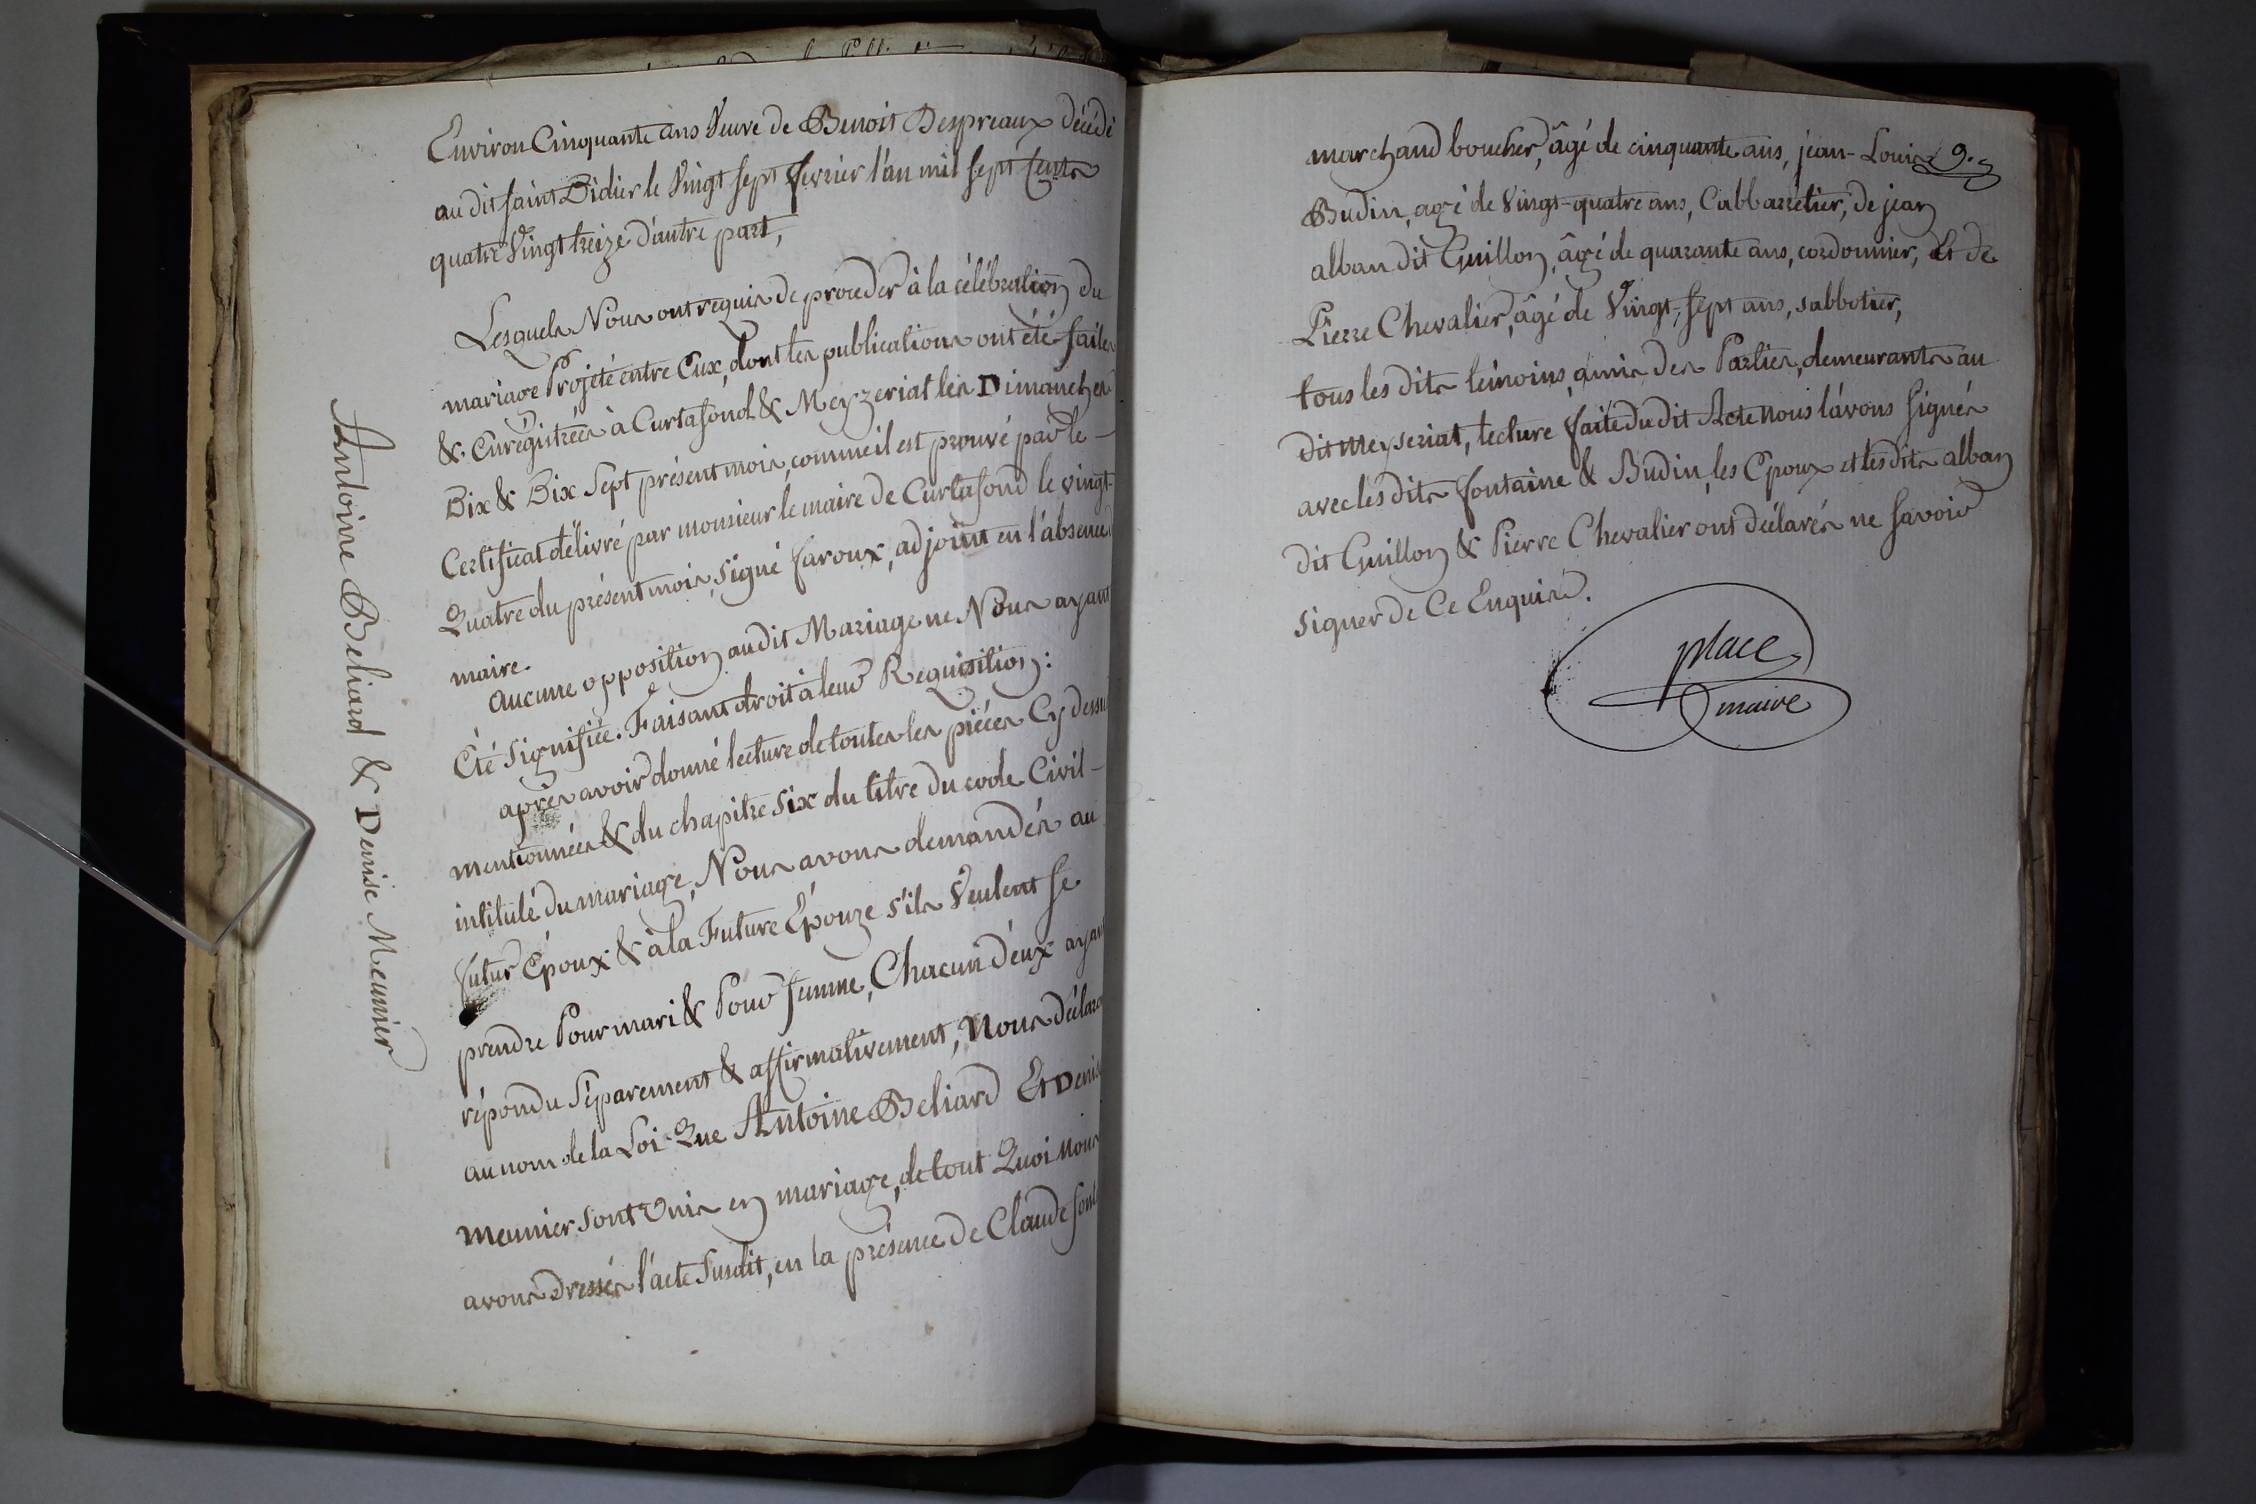 Environ Cinquante ans Veuve de Benoit Despreaux décédé
au dit saint Didier le Vingt sept fevrier l'an mil sept cents
quatre Vingt treize d'autre part,
Lesquels Nous ont requis de proceder à la célébration du
mariage Projeté entre Eux, dont les publications ont été faites
& Enrégistrées à Curtafond & Meyzeriat les Dimanches
Dix & Dix Sept présent mois, comme il est prouvé par le –
Certificat délivré par monsieur le maire de Curtafond le vingt-
Quatre du présent mois, signé faroux, adjoint en l'absence
maire.
Aucune opposition audit Mariage ne Nous ayant
Été Signifiée. Faisant droit à leur Requisition :
après avoir donné lecture de toutes les piéces Cy dessu
mentionnées & du chapitre six du titre du code Civil –
intitulé du mariage, Nous avons demandés au
futur Époux & à la Future Épouze s'ils Veulent se
prendre Pour mari & Pour femme, Chacun d'eux ayant
répondu Séparement & affirmativement, Nous déclaro
au nom de la Loi Que Antoine Beliard Et Denise
Meunier sont Unis en mariage, de tout Quoi Nous
avons Dressés l'acte Susdit, en la présence de Claude font
Antoine Beliard & Denise Meunier
marchand boucher, âgé de cinquante ans, jean-Louis 9.
Budin, agé de Vingt-quatre ans, Cabbarretier, de jean
alban dit Guillon, âgé de quarante ans, cordonnier, Et de
Pierre Chevalier, âgé de Vingt-sept ans, sabbotier,
tous les dits témoins, amis des Parties, demeurants au
dit Meyseriat, lecture faite du dit Acte nous l'avons signés
avec les dits fontaine & Budin, les Epoux et les dits alban
dit Guillon & Pierre Chevalier ont déclarés ne savoir
signer de Ce Enquis.
place
maire